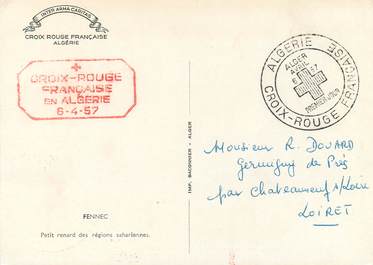 INTER ARMA CARITAS
CROIX ROUGE FRANÇAISE
ALGÉRIE
CROIX-ROUGE
FRANÇAISE
EN ALGERIE
6-4-57
ALGERIE
CROIX-ROUGE FRANÇAISE
ALGER
AVRIL
6 57
PREMIER JOUR
IMP. BACONNIER - ALGER
Monsieur R. DOUARD
Germigny des Prés
par Chateauneuf s/Loire
LOIRET
FENNEC
Petit renard des régions sahariennes.